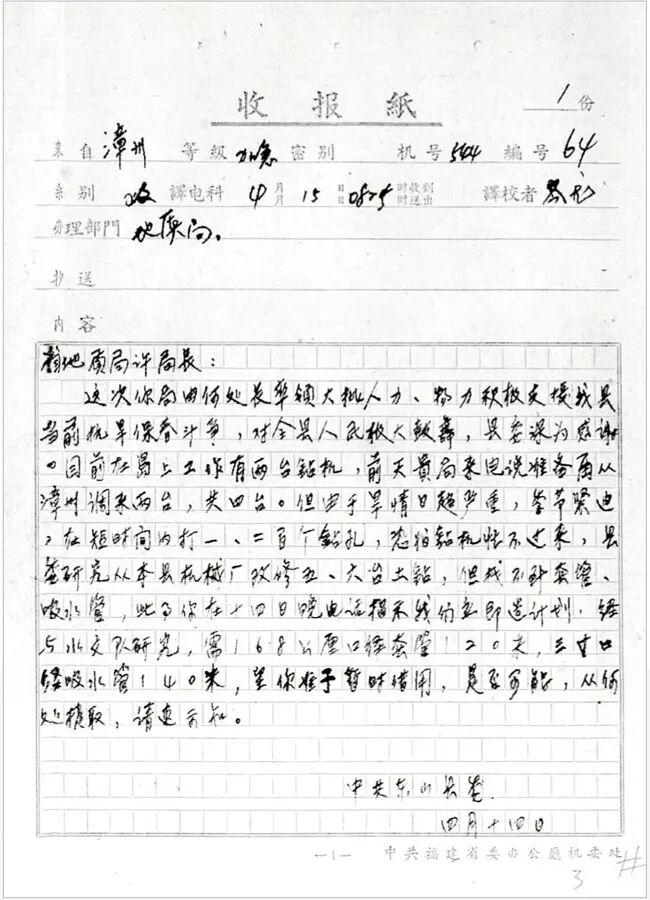 收报紙
1份
来自 漳州 等級 加急 密别 机号 544 編号 64
来别 譯电科 4月 15日 0825 时收到
月 日 时送出 譯校者
办理部門 地质局。
抄送
内容
省地质局许局长：
这次你局由何处长率领大批人力、物力积极支援我县
当前抗旱保春斗争，对全县人民极大鼓舞，县委深为感谢
。目前在岛上工作有两台钻机，前天貴局来电说准备再从
漳州调来两台，共四台。但由于旱情日趋严重，季节紧迫
，在短时间内打一、二百个钻孔，恐怕钻机忙不过来，县
委研究从本县机械厂改修五、六台土钻，但我们缺套管、
吸水管，此事你在十四日晚电话指示我们立即造计划，经
与水文队研究，需168公厘口径套管120米，三寸口
径吸水管140米，望你准予暂时借用，是否可能，从何
处提取，请速示知。
中共东山县委
四月十四日
—1—
中共福建省委办公庭机要处
3